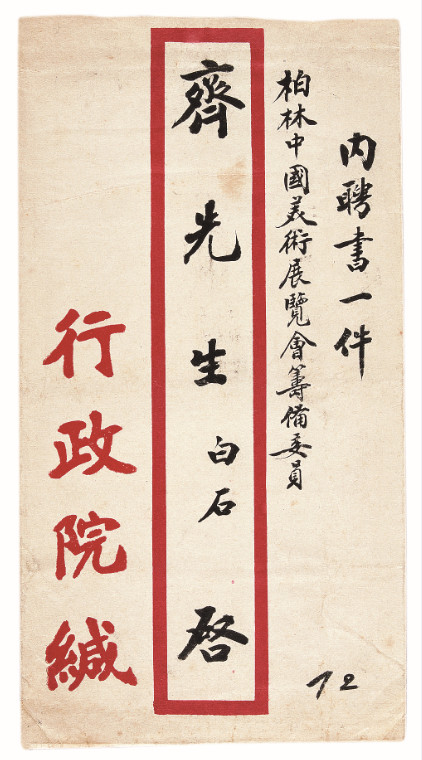 內聘書一件
柏林中國美術展覽會籌備委員
齊先生白石啓
行政院緘
72